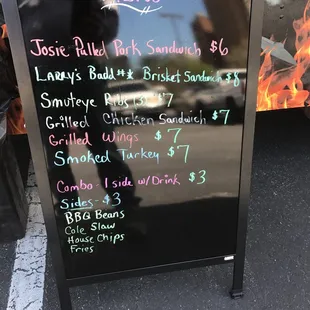 Josie Pulled Pork Sandwich $6
Larry's Badd #* Brisket Sandwich $8
Smuteye Ribs $7
Grilled Chicken Sandwich $7
Grilled Wings $7
Smoked Turkey $7
Combo - 1 side w/Drink $3
Sides - $3
BBQ Beans
Cole Slaw
House Chips
Fries